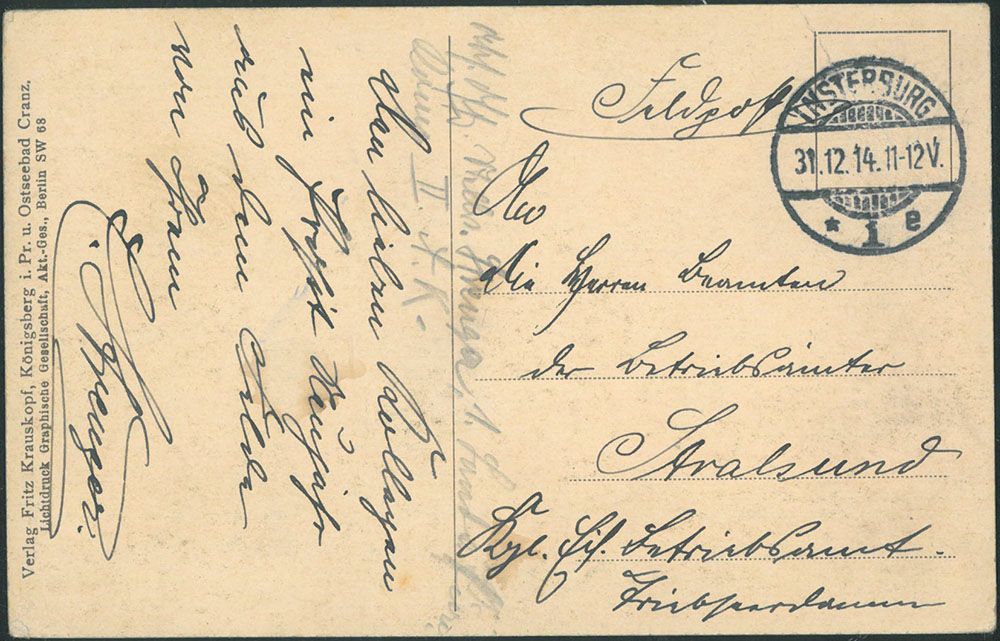 Feldpost
INSTERBURG
31.12.14.11-12V.
* 1 e
An
die Herren Beamten
der Betriebsämter
Stralsund
Kgl. Eis. Betriebsamt.
Tribseerdamm
Den lieben Kollegen
ein Prosit Neujahr
aus dem Felde
von Ihrem
II. A.K.
Verlag Fritz Krauskopf, Königsberg i. Pr. u. Ostseebad Cranz.
Lichtdruck Graphische Gesellschaft, Akt.-Ges., Berlin SW 68